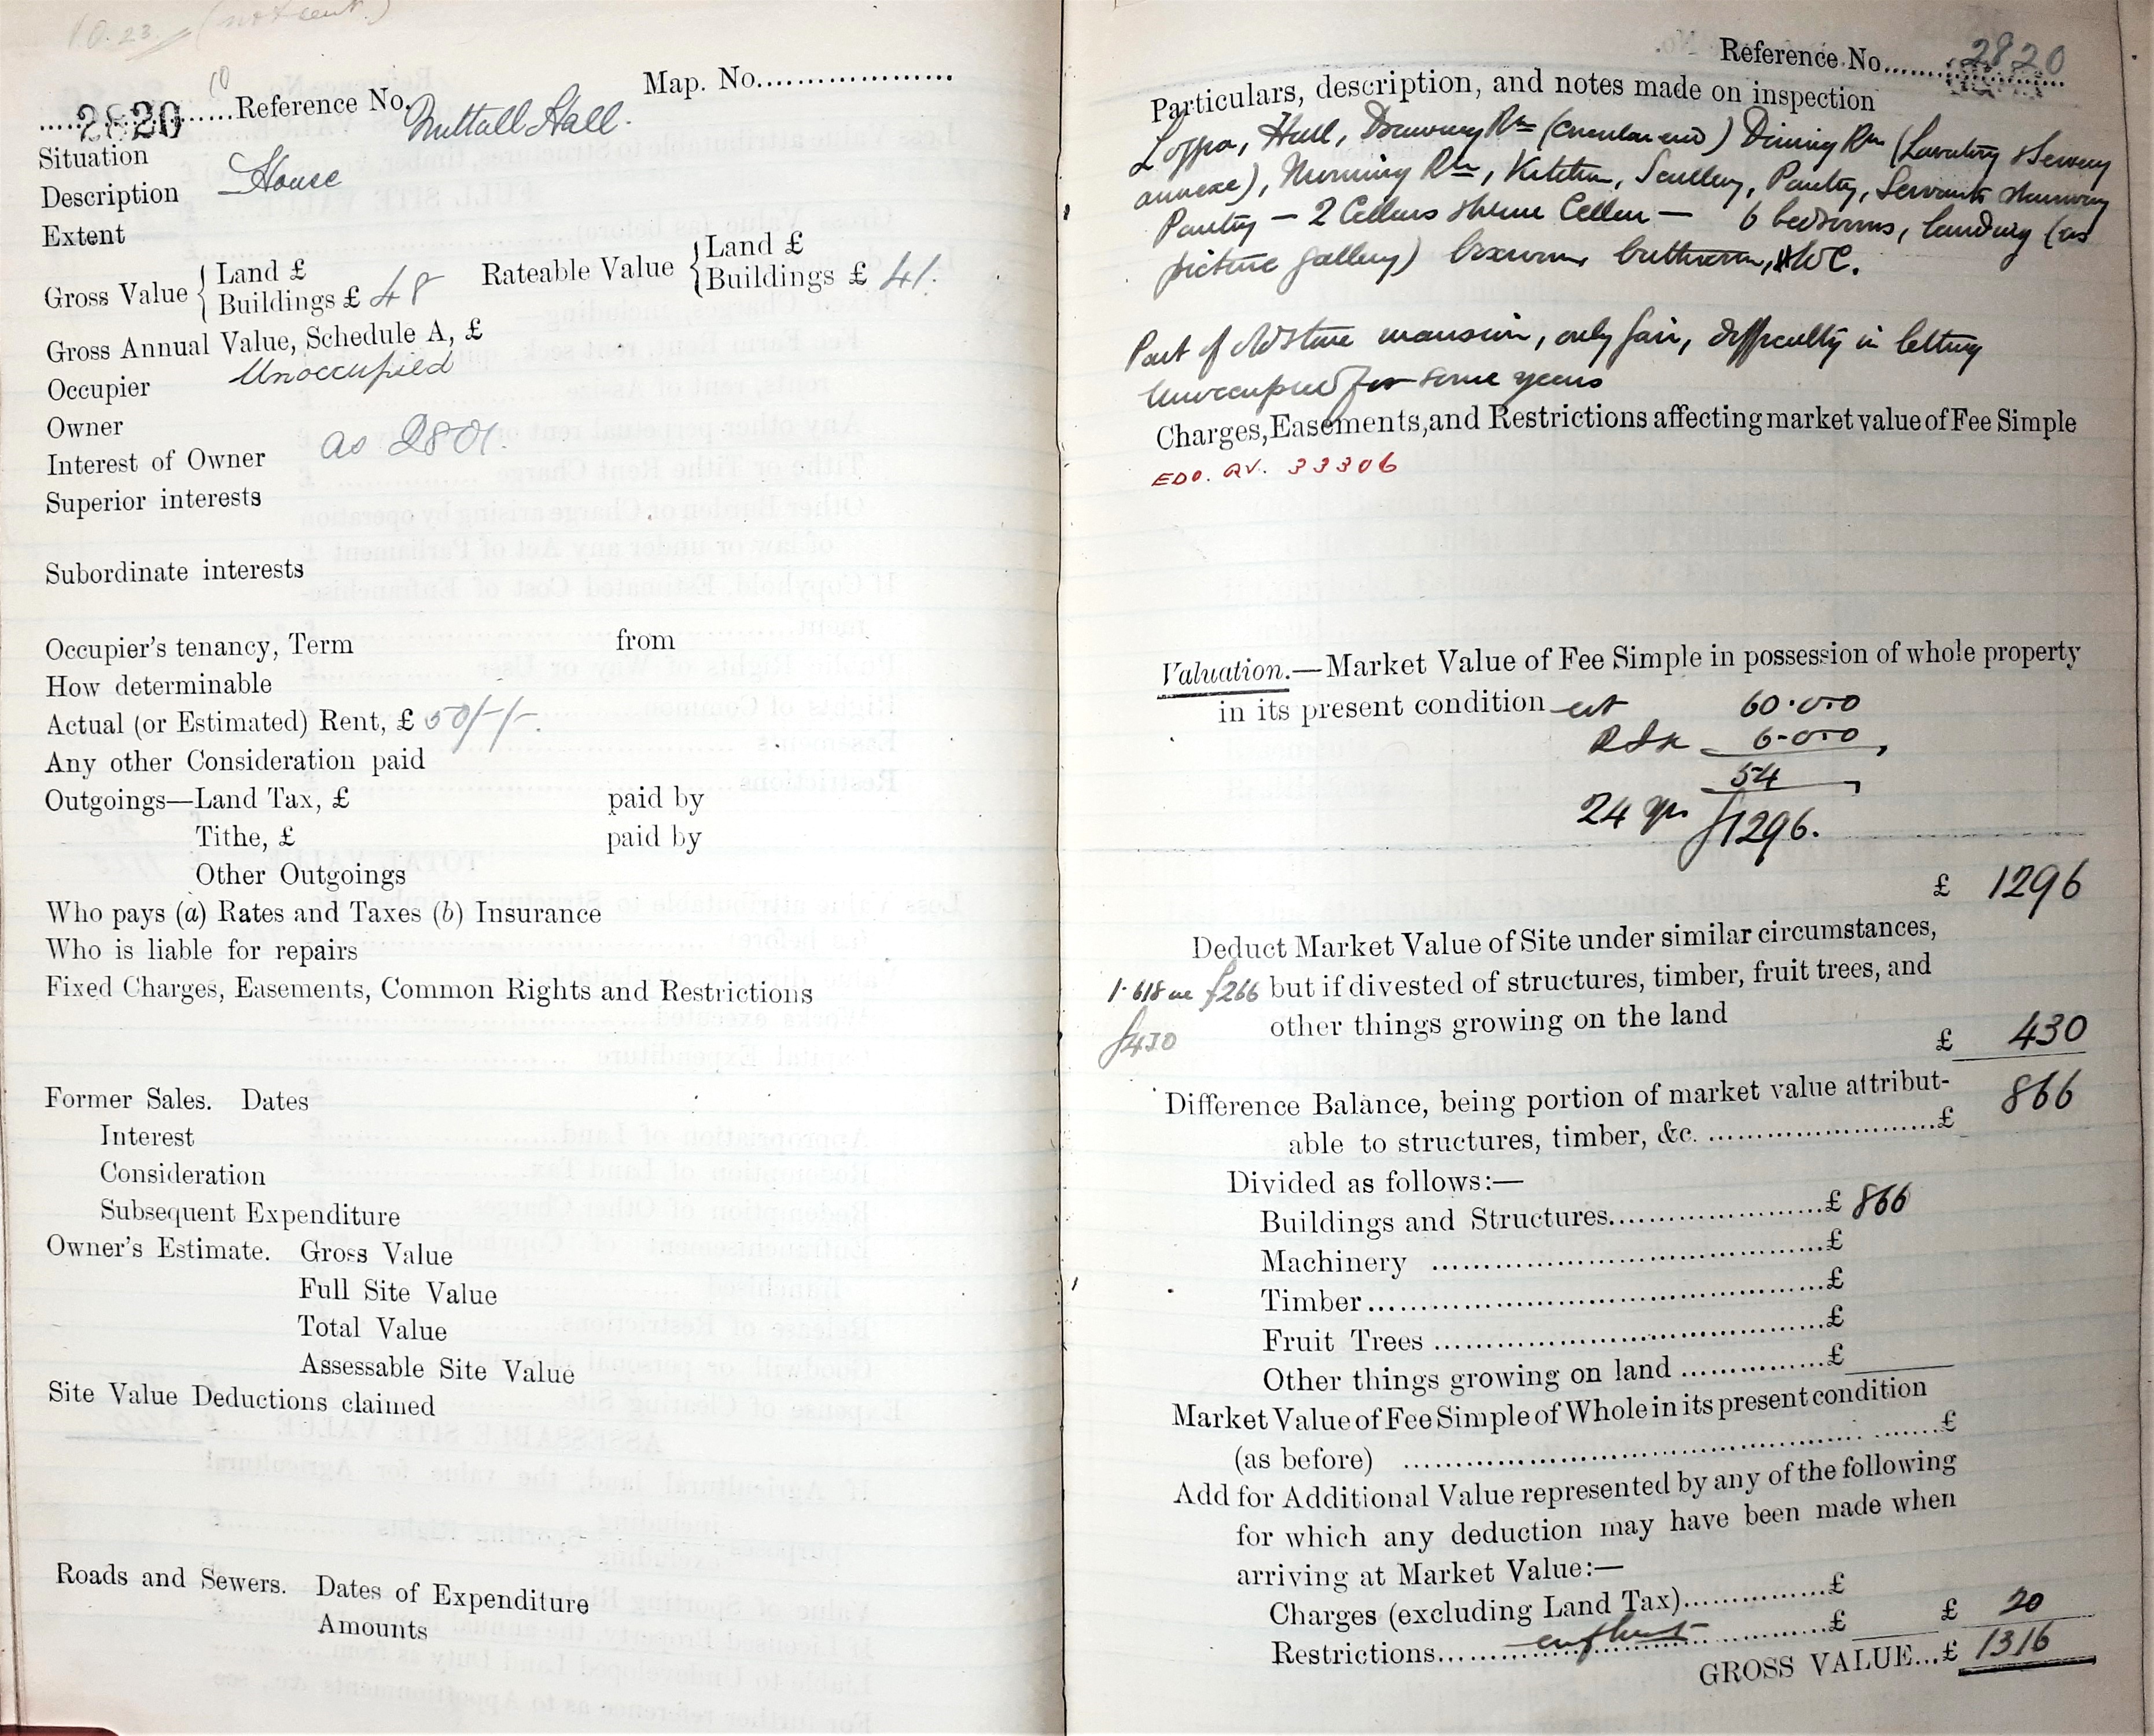 10.23. (not cent.)
10
2820 Reference No. Map. No.
Nuttall Hall.
Situation
Description House
Extent
Gross Value { Land £ Rateable Value { Land £
Buildings £ 48 Buildings £ 41.
Gross Annual Value, Schedule A, £
Occupier Unoccupied
Owner
Interest of Owner as 2801.
Superior interests
Subordinate interests
Occupier's tenancy, Term from
How determinable
Actual (or Estimated) Rent, £ 50/-/-.
Any other Consideration paid
Outgoings—Land Tax, £ paid by
Tithe, £ paid by
Other Outgoings
Who pays (a) Rates and Taxes (b) Insurance
Who is liable for repairs
Fixed Charges, Easements, Common Rights and Restrictions
Former Sales. Dates
Interest
Consideration
Subsequent Expenditure
Owner's Estimate. Gross Value
Full Site Value
Total Value
Assessable Site Value
Site Value Deductions claimed
Roads and Sewers. Dates of Expenditure
Amounts
Reference No. 2820
Particulars, description, and notes made on inspection
Loggia, Hall, Drawing Rm (circular end) Dining Rm (Lavatory &
annexe), Morning Rm, Kitchen, Scullery, Pantry, Servants
Pantry — 2 Cellars & Wine Cellar — 6 bedrooms, landing (as
picture gallery) boxroom, bathroom, & WC.
Part of old stone mansion, only fair, difficulty in letting
Unoccupied for some years
Charges, Easements, and Restrictions affecting market value of Fee Simple
EDO. AV. 33306
Valuation.—Market Value of Fee Simple in possession of whole property
in its present condition 60.0.0
6-0-0
54
24 yrs £1296.
£ 1296
Deduct Market Value of Site under similar circumstances,
1.618 ac £266 but if divested of structures, timber, fruit trees, and
other things growing on the land
£430 £ 430
Difference Balance, being portion of market value attribut- 866
able to structures, timber, &c. £
Divided as follows:—
Buildings and Structures £ 866
Machinery £
Timber £
Fruit Trees £
Other things growing on land £
Market Value of Fee Simple of Whole in its present condition
(as before) £
Add for Additional Value represented by any of the following
for which any deduction may have been made when
arriving at Market Value:—
Charges (excluding Land Tax) £
Restrictions £ £ 20
GROSS VALUE...£ 1316